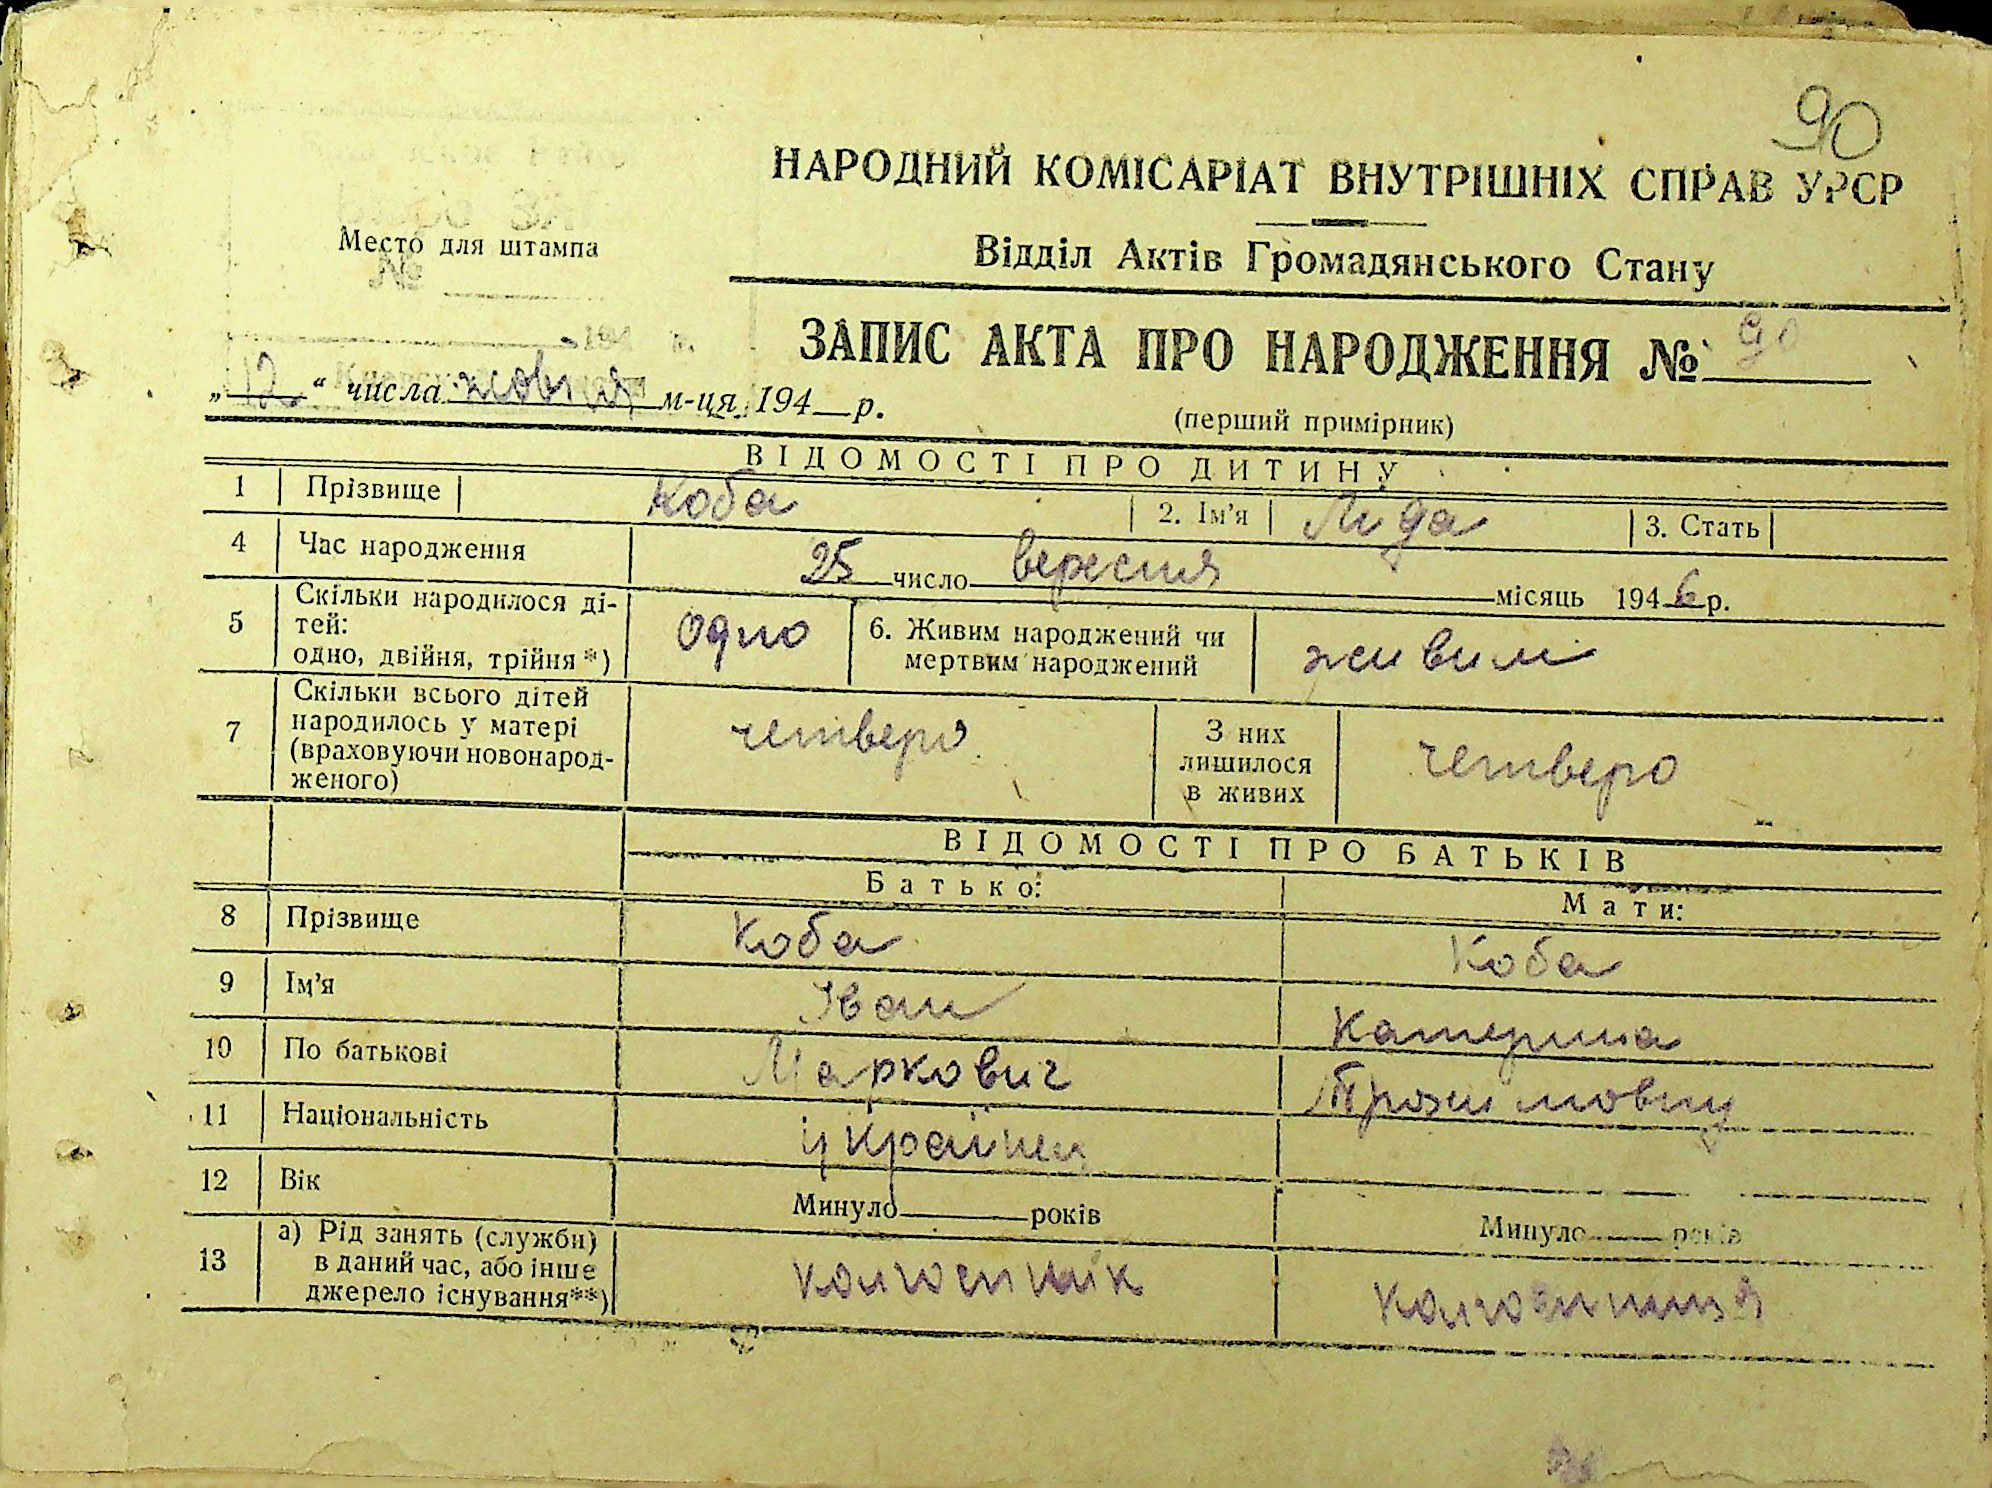 90
НАРОДНИЙ КОМІСАРІАТ ВНУТРІШНІХ СПРАВ УРСР
Место для штампа
№
Відділ Актів Громадянського Стану
ЗАПИС АКТА ПРО НАРОДЖЕННЯ № 90
„12“ числа жовтня м-ця 194 р.
(перший примірник)
ВІДОМОСТІ ПРО ДИТИНУ
1 Прізвище Коба 2. Ім'я Ліда 3. Стать
4 Час народження 25 число вересня місяць 1946 р.
5 Скільки народилося ді-
тей:
одно, двійня, трійня*) одно 6. Живим народжений чи
мертвим народжений живим
7 Скільки всього дітей
народилось у матері
(враховуючи новонарод-
женого) четверо З них
лишилося
в живих четверо
ВІДОМОСТІ ПРО БАТЬКІВ
Батько: Мати:
8 Прізвище Коба Коба
9 Ім'я Іван Катерина
10 По батькові Маркович
11 Національність українец
12 Вік Минуло років Минуло років
13 а) Рід занять (служби)
в даний час, або інше
джерело існування**) колгоспнік